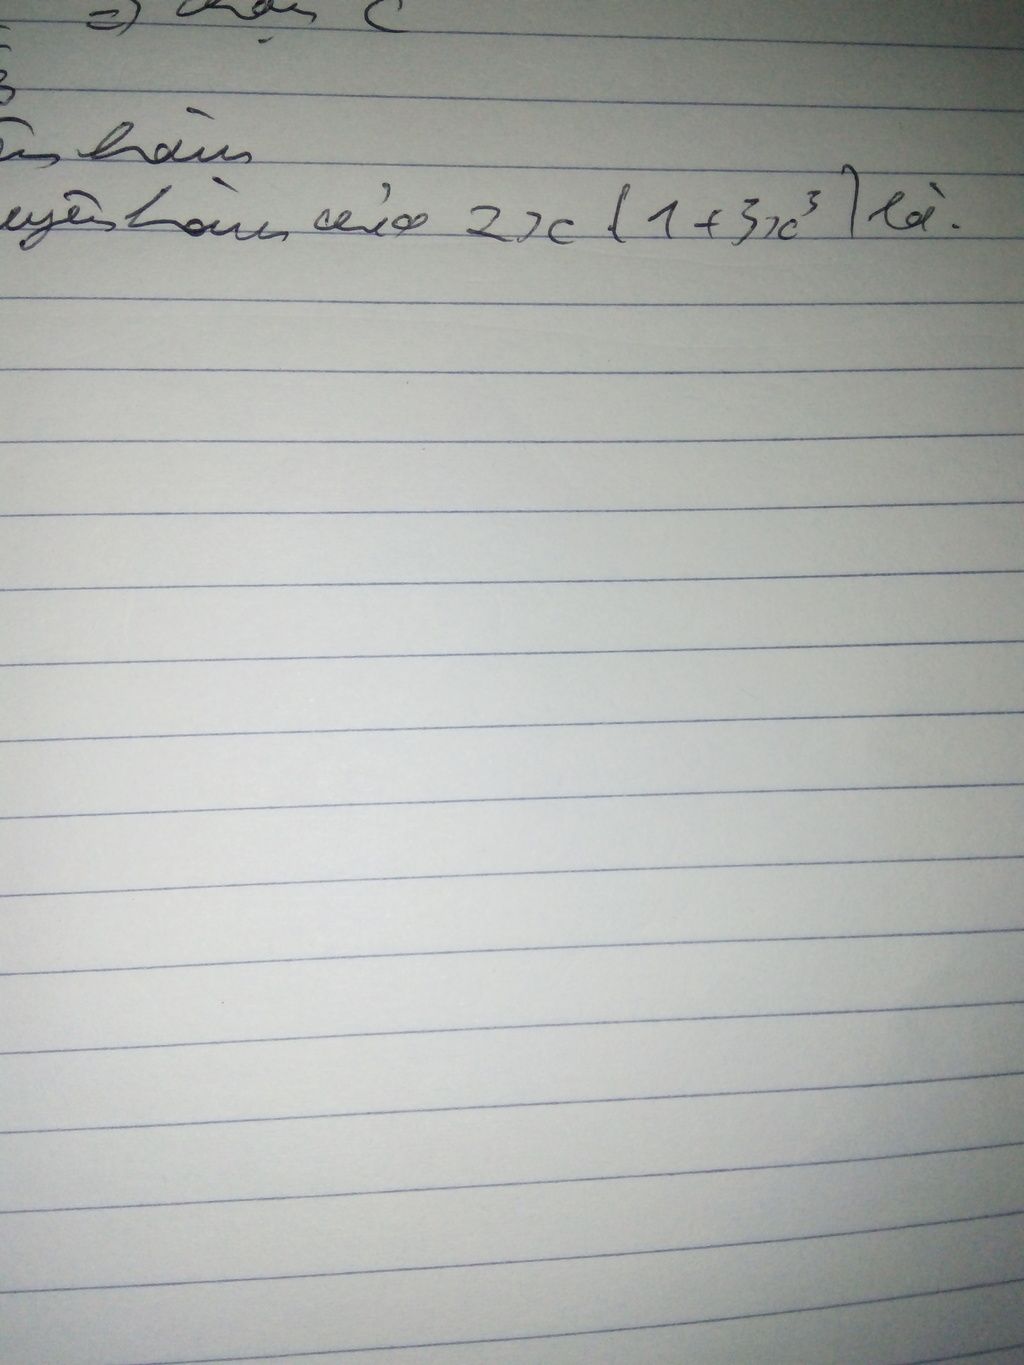 =) chọn C
3
ên hàm
uyên hàm của 2x (1+3x³) là.